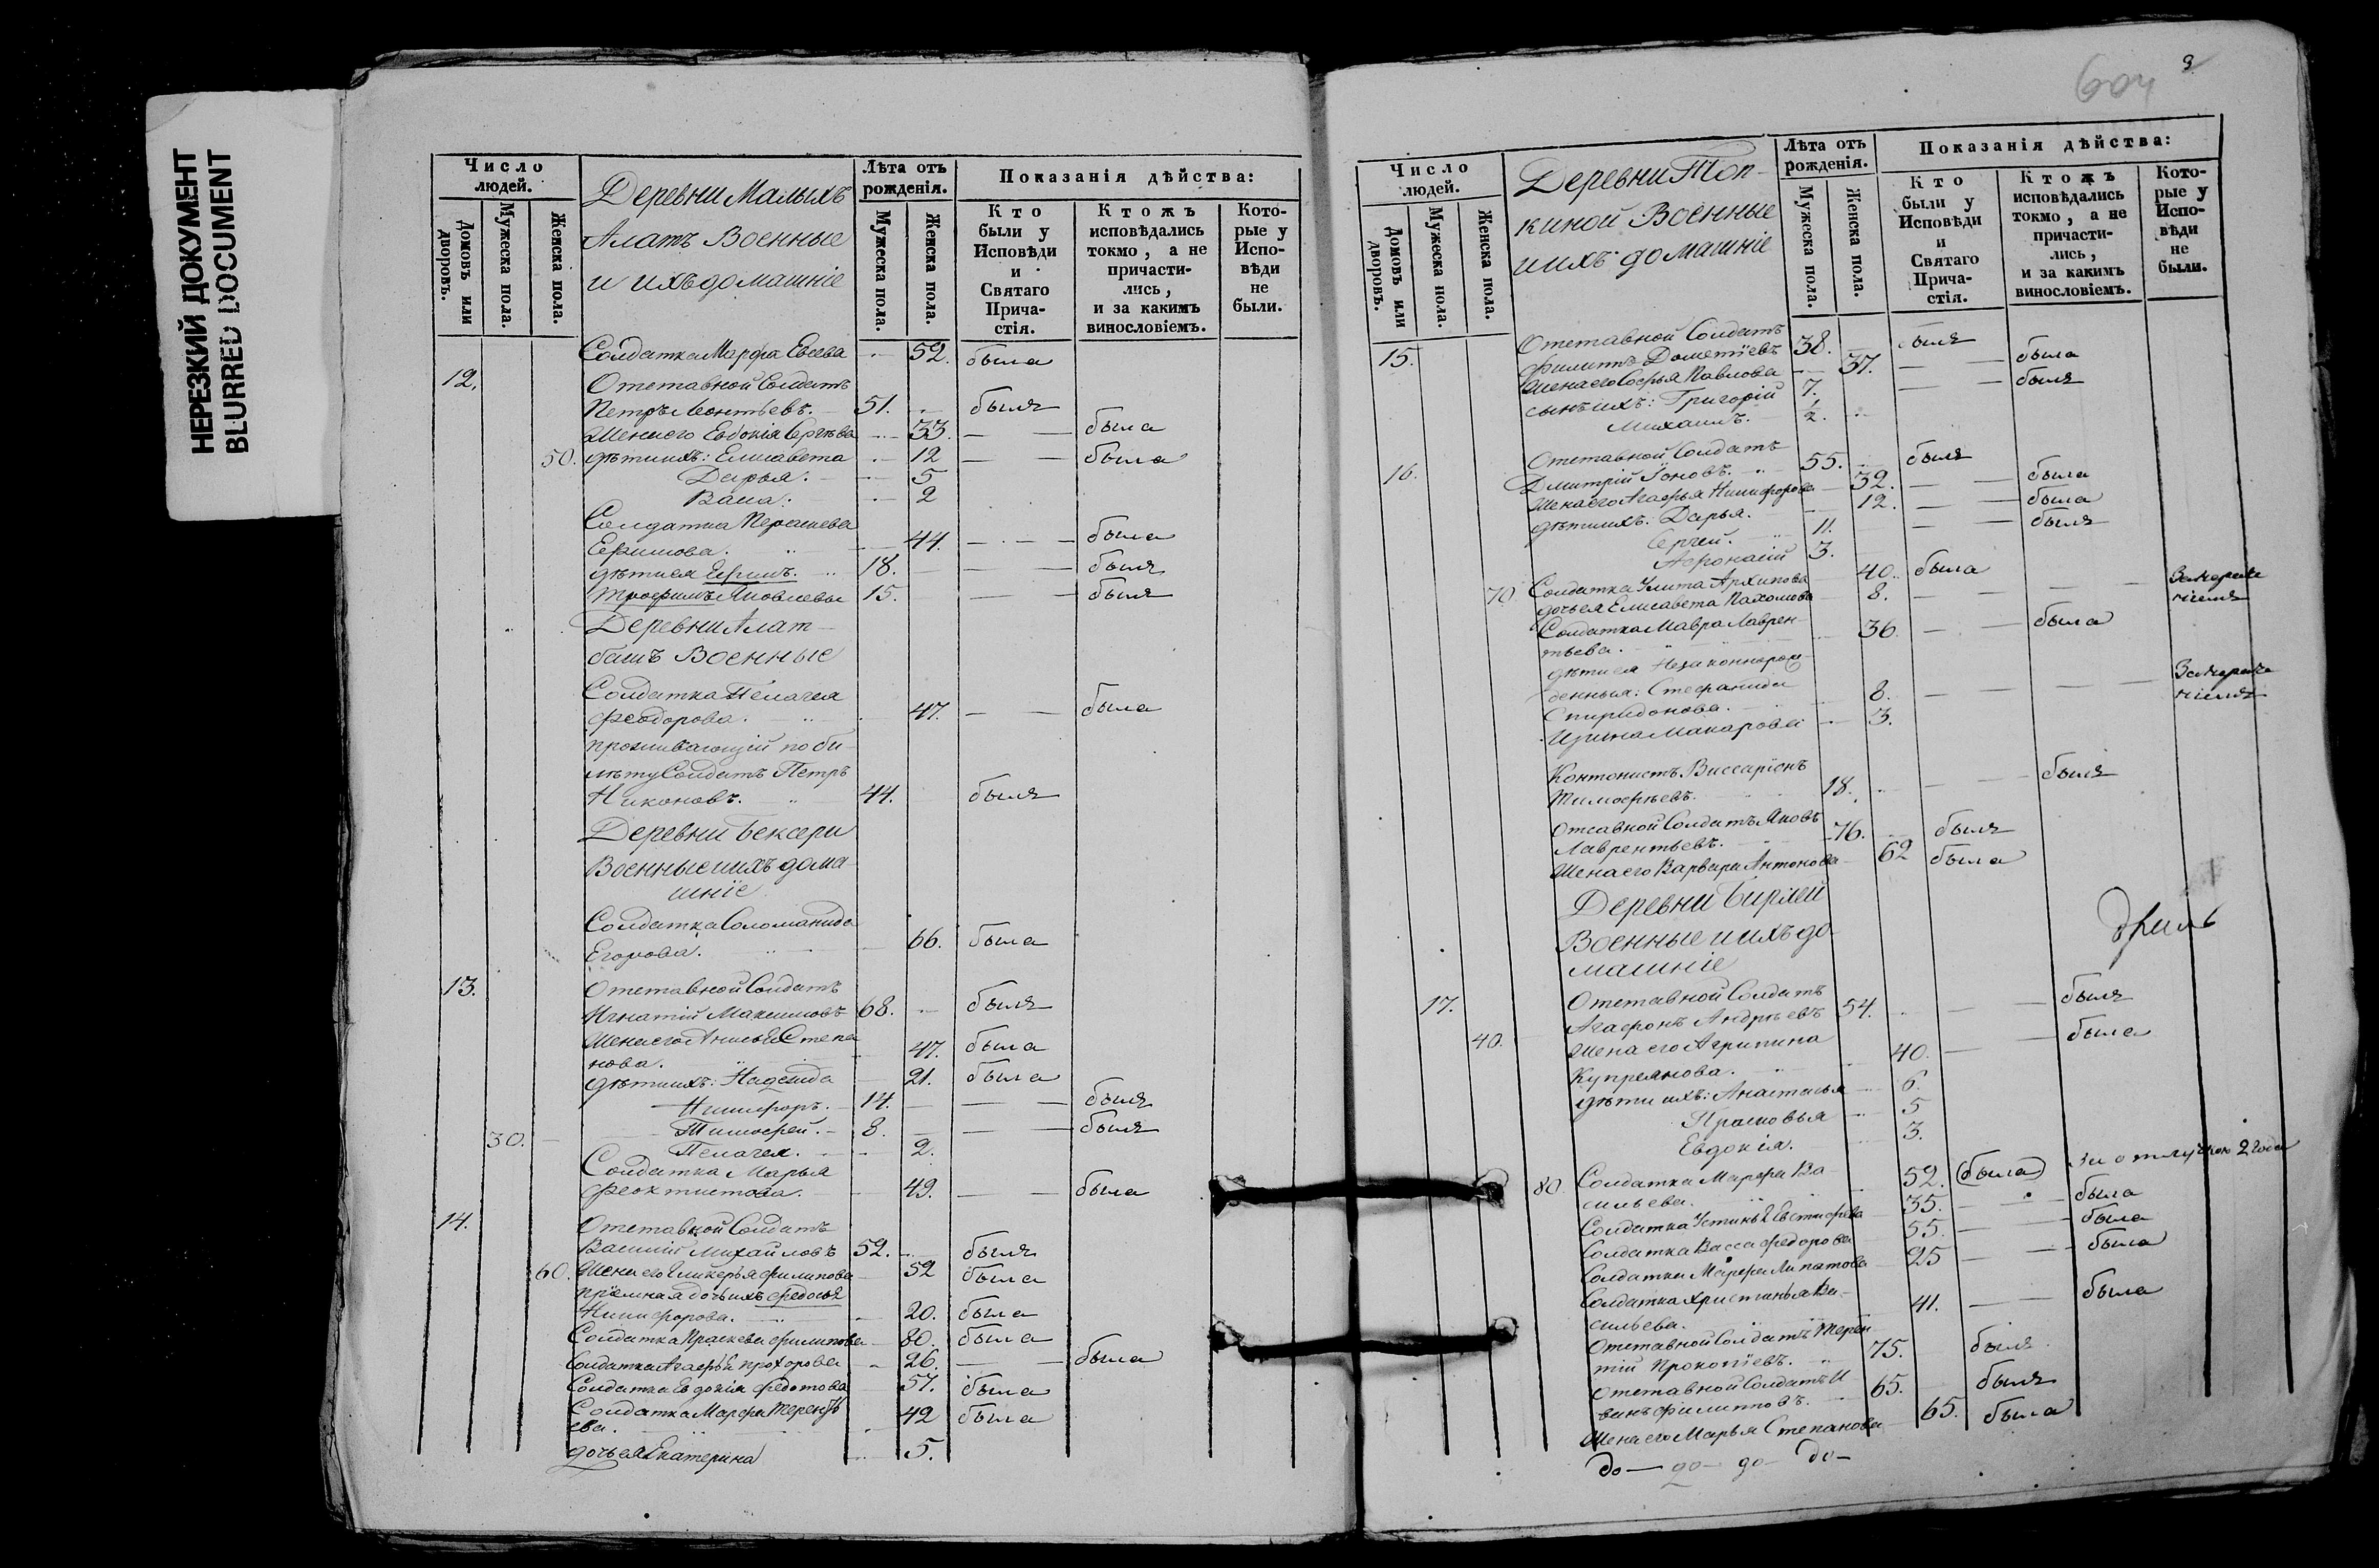 НЕРЕЗКИЙ ДОКУМЕНТ
BLURRED DOCUMENT
Число людей.
Домовъ или дворовъ.
Мужеска пола.
Женска пола.
Деревни Малыхъ
Алатъ Военные
и ихъ домашніе
Лѣта отъ рожденія.
Мужеска пола.
Женска пола.
Показанія дѣйства:
Кто были у Исповѣди и Святаго Прича-стія.
Ктожъ исповѣдались токмо, а не причасти-лись, и за какимъ винословіемъ.
Кото-рые у Испо-вѣди не были.
Солдатка Марфа Евсева 52. была
12. Отставной Солдатъ
Петръ Леонтьевъ. 51. былъ
Жена его Евдокія Сергѣева 33. была
50. дѣти ихъ: Елисавета 12 была
Дарья. 5
Васса. 2
Солдатка Парасկева
Ефимова. 44. была
дѣти ея Ефимъ. 18. былъ
Трофимъ Яковлевы 15. былъ
Деревни Алат-
башъ Военные
Солдатка Пелагея
Феодорова. 47. была
проживающій по би-
лѣту Солдатъ Петръ
Никоновъ. 44. былъ
Деревни Бексери
Военные и ихъ дома
шніе
Солдатка Соломанида
Егорова. 66. была
13. Отставной Солдатъ
Игнатій Максимовъ 68. былъ
Жена его Анисья Степа
нова. 47. была
дѣти ихъ: Надежда 21. была
Никифоръ. 14. былъ
30. Тимофей. 8. былъ
Пелагея. 2.
Солдатка Марья
Феоктистова. 49. была
14. Отставной Солдатъ
Василій Михайловъ 52. былъ
60. Жена его Гликерья Филипова 52 была
пріемная дочь ихъ Федосья
Никифорова. 20. была
Солдатка Праскева Филипова 80. была
Солдатка Агафья Прохорова 26. была
Солдатка Евдокія Федотова 57. была
Солдатка Марфа Терентье
ева. 42 была
дочь ея Екатерина 5.
604
9
Число людей.
Домовъ или дворовъ.
Мужеска пола.
Женска пола.
Деревни Топ-
киной Военные
и ихъ домашніе
Лѣта отъ рожденія.
Мужеска пола.
Женска пола.
Показанія дѣйства:
Кто были у Исповѣди и Святаго Прича-стія.
Ктожъ исповѣдались токмо, а не причасти-лись, и за какимъ винословіемъ.
Кото-рые у Испо-вѣди не были.
15. Отставной Солдатъ
Филипъ Дометіевъ 38. былъ
Жена его Софья Павлова 37. была
сынъ ихъ: Григорій 7. былъ
Михаилъ. 2.
16. Отставной Солдатъ
Дмитрій Іоновъ. 55. былъ
Жена его Агафья Никифорова 32. была
дѣти ихъ: Дарья. 12. была
Сергей. 11. былъ
Афонасій 3.
Солдатка Улита Архипова 40. была
70 дочь ея Елисавета Пахомова 8.
Солдатка Мавра Лаврен-
тьева. 36. была
дѣти ея Незаконнорож
денныя: Стефанида
Спиридонова. 8.
Ирина Макарова 3.
Контонистъ Виссаріонъ
Тимофѣевъ. 18. былъ
Отсавной Солдатъ Яковъ
Лаврентьевъ. 76. былъ
Жена его Варвара Антонова 62 была
Деревни Бирлей
Военные и ихъ до-
машніе
17. Отставной Солдатъ
Агафонъ Андреевъ 54. былъ
40. Жена его Агрипина
Купреянова. 40. была
дѣти ихъ: Анастасья 6.
Прасковья 5
Евдокія. 3.
80. Солдатка Марфа Ва-
сильева. 52. (была) За отлучкою 2 года
Солдатка Устинья Евстифева 35. была
Солдатка Васса Федорова 55. была
Солдатка Марфа Липатова 25 была
Солдатка Христинья Ва-
сильева. 41. была
Отставной Солдатъ Терен
тій Прокопіевъ. 75. былъ
Отставной Солдатъ И
ванъ Филиповъ. 65. былъ
Жена его Марья Степанова 65. была
до— до— до— до—